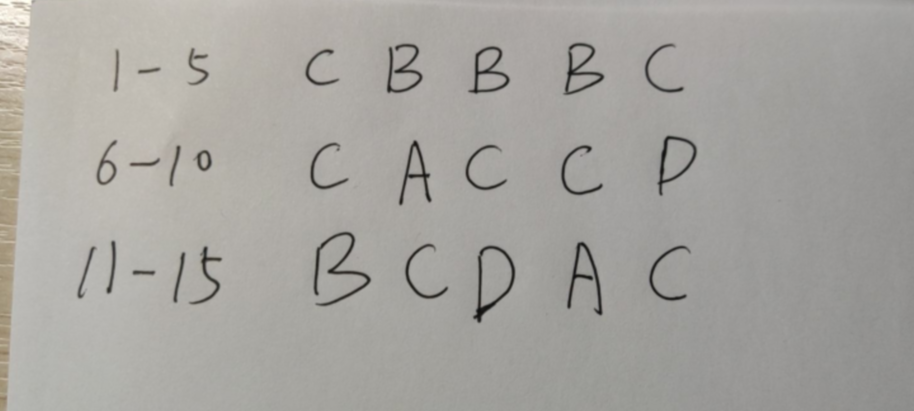 1-5 C B B B C
6-10 C A C C D
11-15 B C D A C